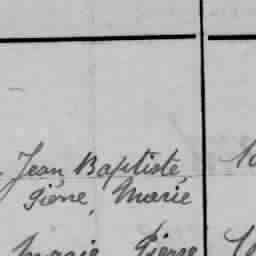 Jean Baptiste,
Pierre, Marie
Marie Pierre